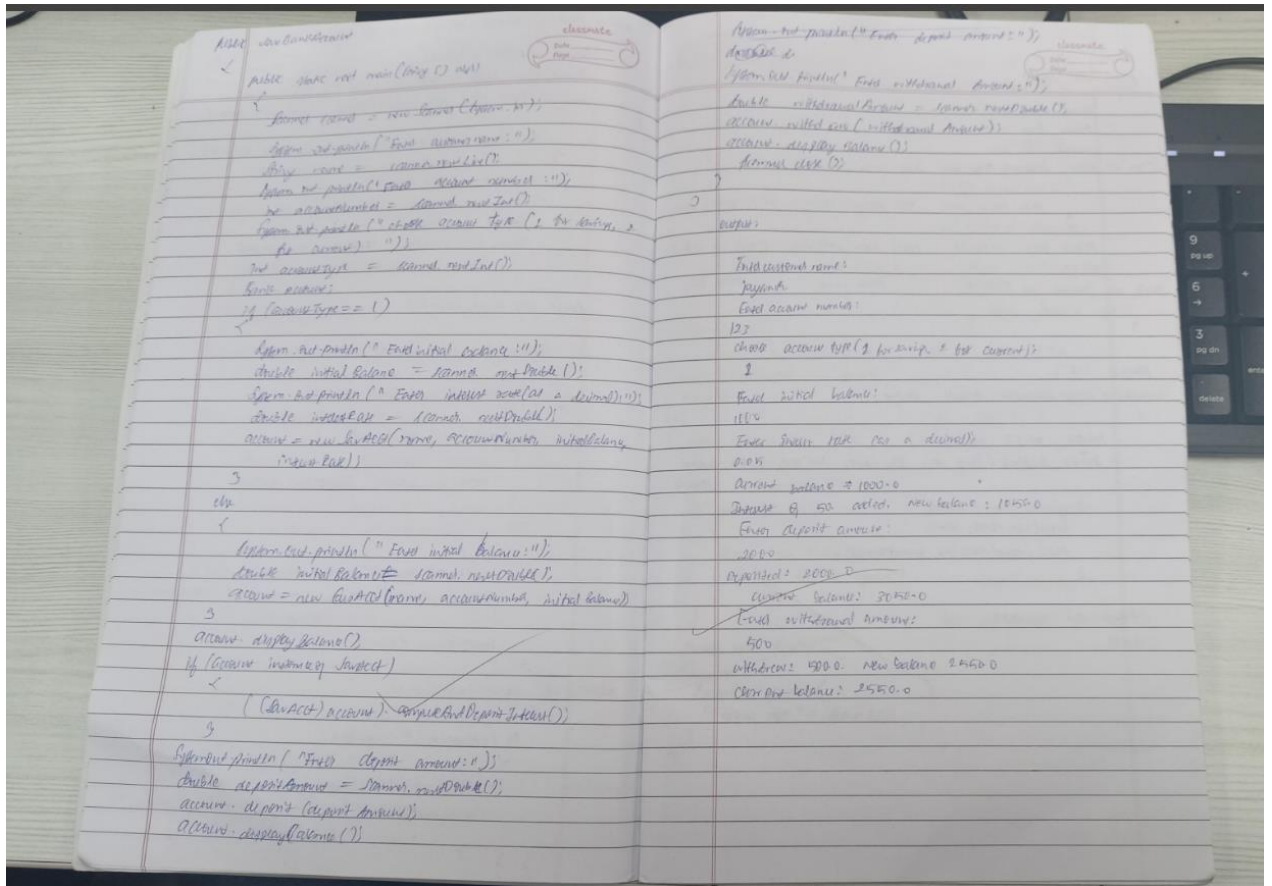 public
{
public static void main(String [] args)
{
Scanner scanner = new Scanner(System.in);
System.out.println("Enter customer name:");
String name = scanner.nextLine();
System.out.println("Enter account number:");
int accountNumber = scanner.nextInt();
System.out.println("choose account type (1 for savings, 2
for current) ");
int accountType = scanner.nextInt();
Bank account;
if (accountType == 1)
{
System.out.println("Enter initial balance:");
double initialBalance = scanner.nextDouble();
System.out.println("Enter interest rate(as a decimal):");
double interestRate = scanner.nextDouble();
account = new SavAcct(name, accountNumber, initialBalance,
interestRate);
}
else
{
System.out.println("Enter initial Balance:");
double initialBalance = scanner.nextDouble();
account = new CurrAcct(name, accountNumber, initialBalance)
}
account.displayBalance();
if (account instanceof SavAcct)
{
((SavAcct) account).
}
System.out.println("Enter deposit amount:");
double depositAmount = scanner.nextDouble();
account.deposit(depositAmount);
account.displayBalance();
classmate
Date
Page
System.out.println("Enter deposit amount:");
System.out.println("Enter withdrawal Amount:");
double withdrawalAmount = scanner.nextDouble();
account.withdraw(withdrawal Amount);
account.display Balance();
scanner.close();
}
}
output:
Enter customer name:
Enter account number:
123
choose account type(1 for savings, 2 for current):
1
Enter initial balance:
1000
Enter interest rate (as a decimal):
0.05
current balance: 1000.0
Interest of 50 added. New balance: 1050.0
Enter deposit amount:
2000
Deposited: 2000.0
current balance: 3050.0
Enter withdrawal amount:
500
withdrew: 500.0. New balance 2550.0
Current balance: 2550.0
classmate
Date
Page
9
pg up
6
3
pg dn
enter
delete
+